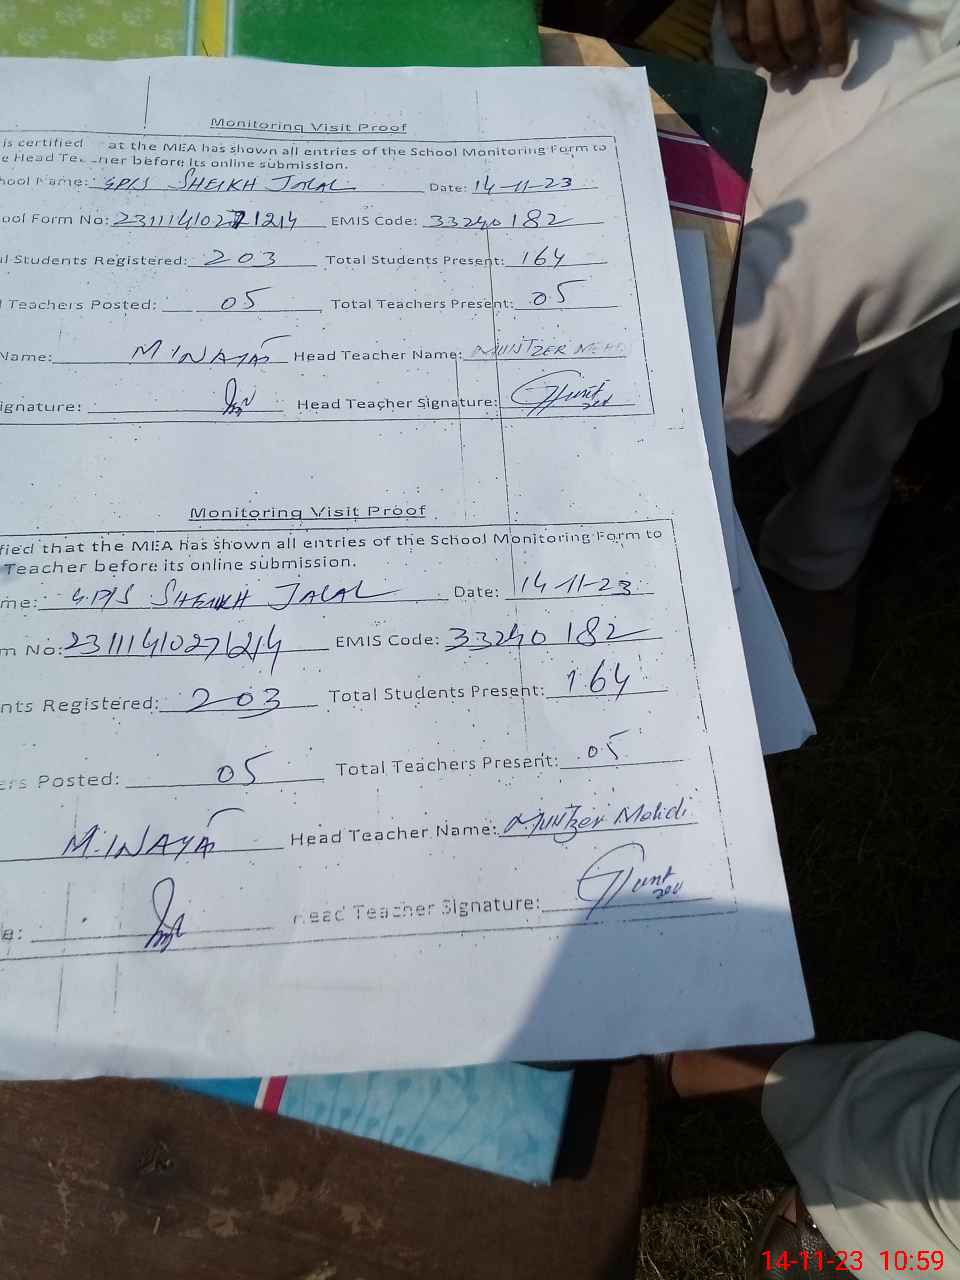 Monitoring Visit Proof
is certified at the MEA has shown all entries of the School Monitoring Form to
e Head Te ner before its online submission.
hool Name: GP/S SHEIKH JALAL Date: 14-11-23
ool Form No: 23111410271214 EMIS Code: 33240182
l Students Registered: 203 Total Students Present: 164
l Teachers Posted: 05 Total Teachers Present: 05
Name: M INAYAT Head Teacher Name: MUNTZER MEH
ignature: Head Teacher Signature:
Monitoring Visit Proof
fied that the MEA has shown all entries of the School Monitoring Form to
Teacher before its online submission.
me: G.P/S SHEIKH JALAL Date: 14-11-23
m No: 23111410271214 EMIS Code: 33240182
nts Registered: 203 Total Students Present: 164
ers Posted: 05 Total Teachers Present: 05
M. INAYAT Head Teacher Name: Muntzer Mehdi
e: Head Teacher Signature:
14-11-23 10:59